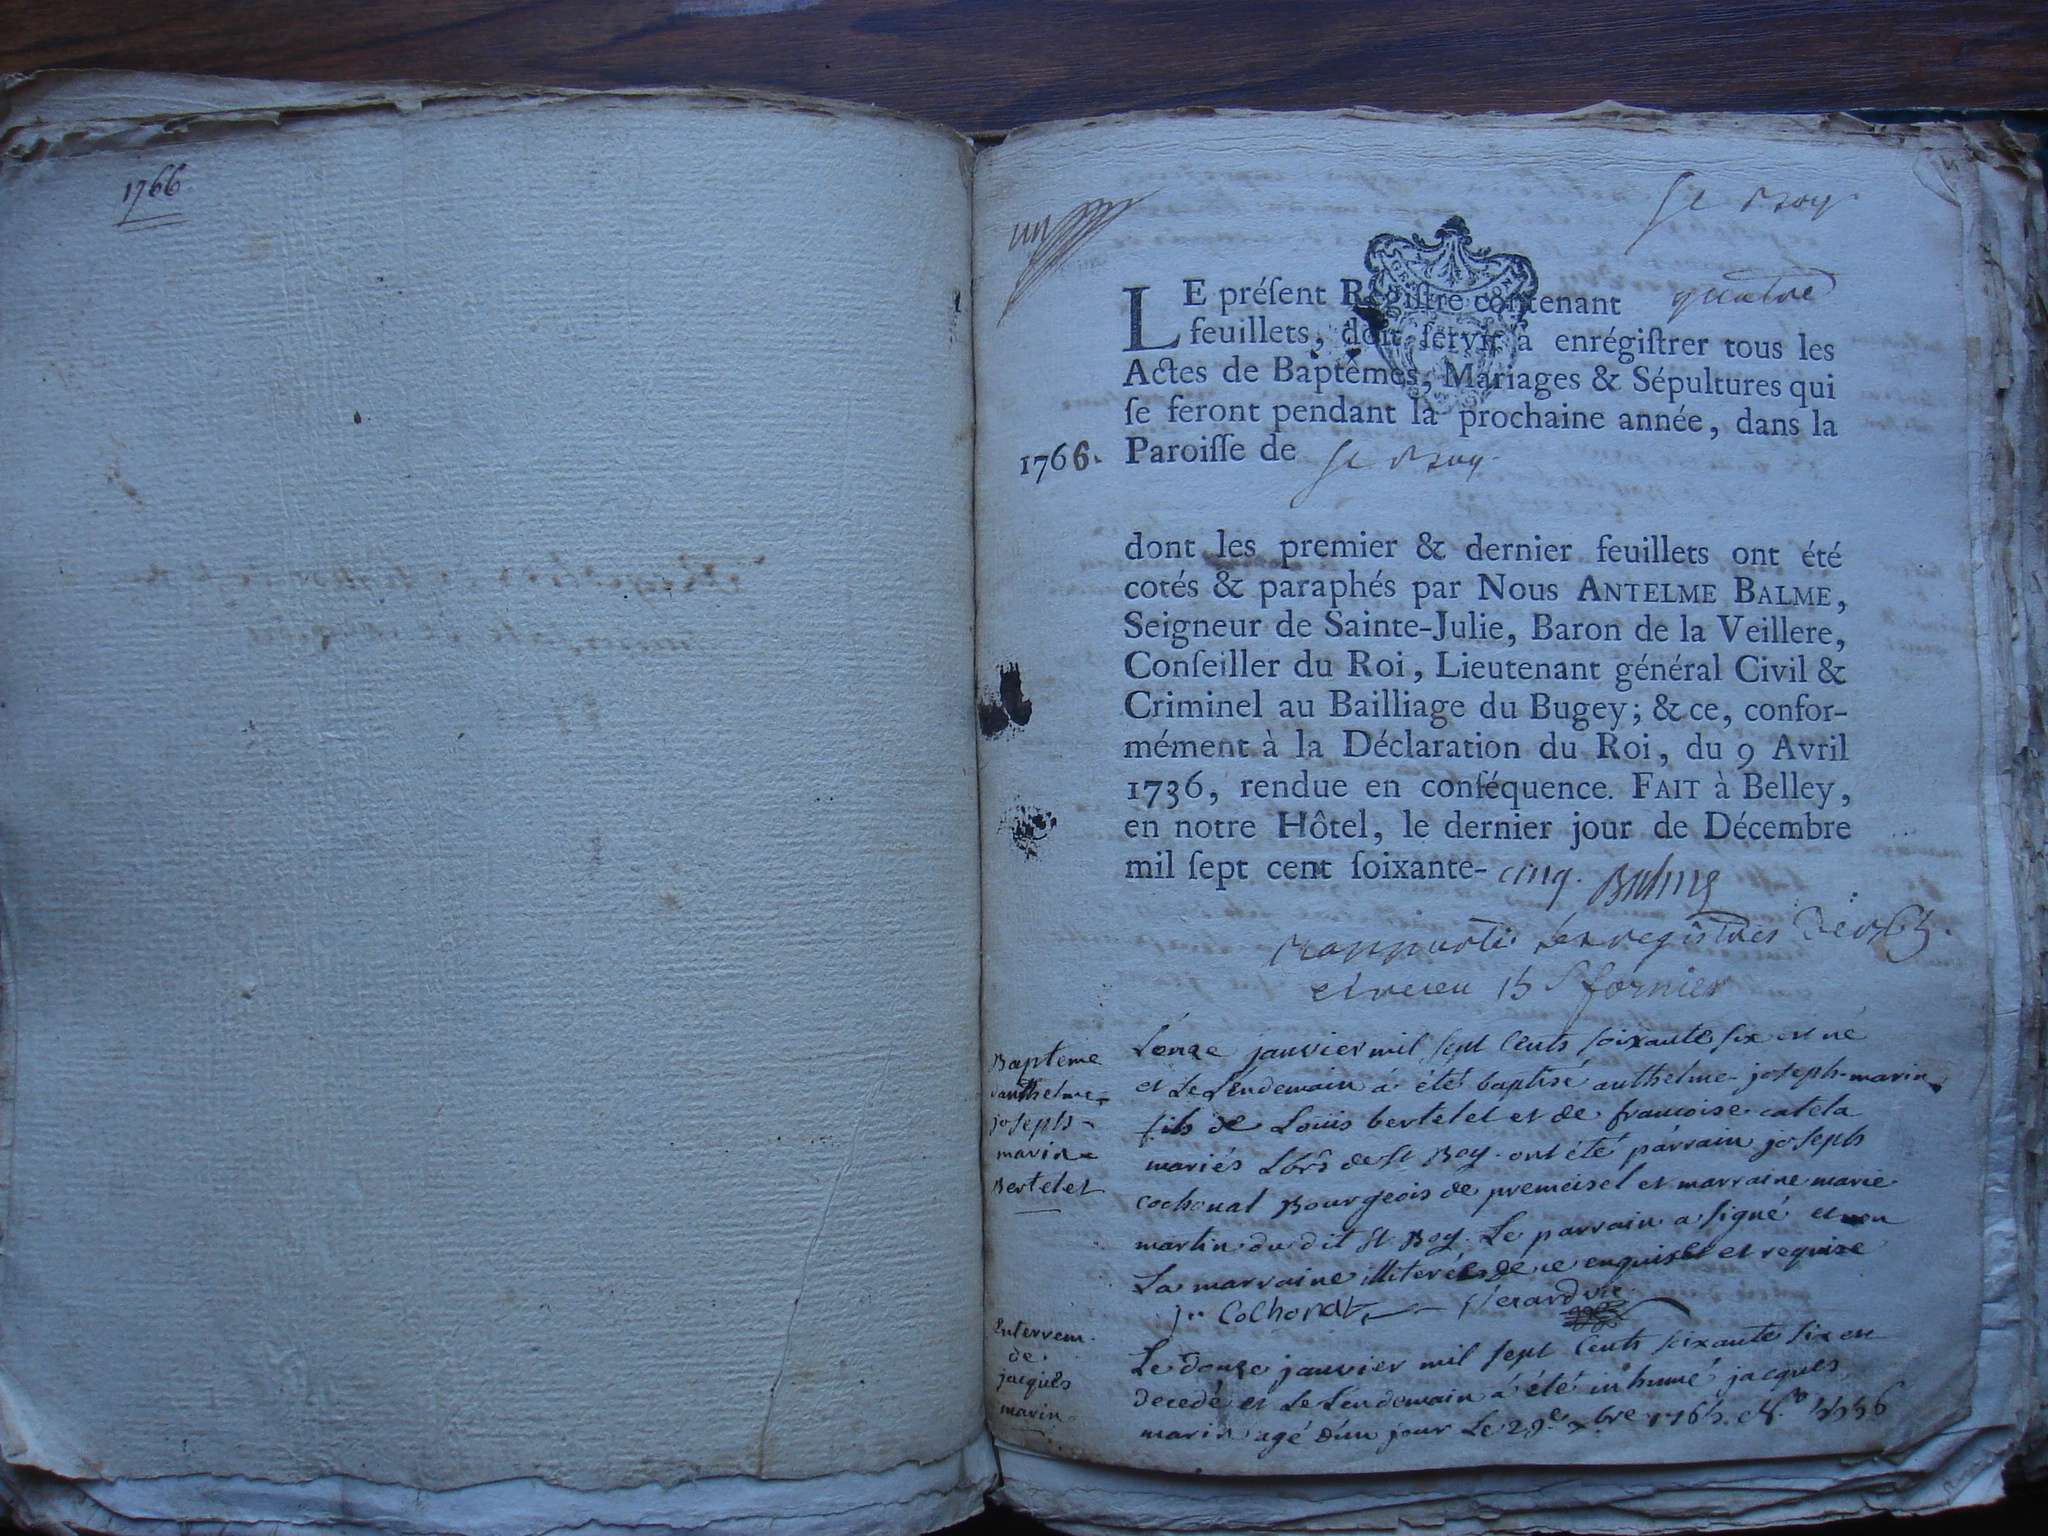 1766
un
St Boy
LE préſent Regiſtre contenant quatre
feuillets, doit ſervir à enrégiſtrer tous les
Actes de Baptêmes, Mariages & Sépultures qui
ſe feront pendant la prochaine année, dans la
1766. Paroiſſe de St Boy.
dont les premier & dernier feuillets ont été
cotés & paraphés par Nous ANTELME BALME,
Seigneur de Sainte-Julie, Baron de la Veillere,
Conſeiller du Roi, Lieutenant général Civil &
Criminel au Bailliage du Bugey; & ce, confor-
mément à la Déclaration du Roi, du 9 Avril
1736, rendue en conſéquence. FAIT à Belley,
en notre Hôtel, le dernier jour de Décembre
mil ſept cent ſoixante-cinq. Balme
rapporté les registres de
et receu 15 s fornier
Bapteme
d'anthelme
joseph
marin
Bertelet
L'onze janvier mil sept cents soixante six est né
et Le Lendemain à été baptisé anthelme joseph marin
fils de Louis bertelet et de francoise catela
mariés de St Boy. ont été parrain joseph
cochonat Bourgeois de premeisel et marraine marie
martin du dit St Boy. Le parrain a signé et non
La marraine illiterée de ce enquise et requise
Cochonat
Enterrem.
de
jacques
marin
Le douze janvier mil sept cents soixante six est
decedé et Le Lendemain à été inhumé jacques
marin agé d'un jour Le 29e xbre 1765